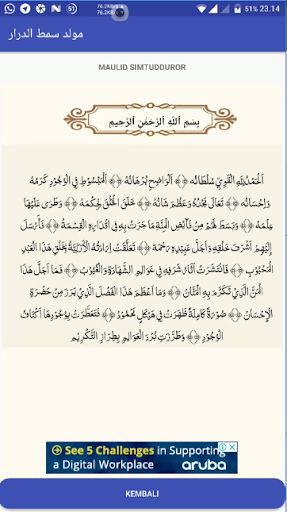 76.2KB/s
76.2KB/s
51% 23.14
مولد سمط الدرار
MAULID SIMTUDDUROR
بِسْمِ اللهِ الرَّحْمٰنِ الرَّحِيْمِ
اَلْحَمْدُ لِلّٰهِ الْقَوِيِّ سُلْطَانُهُ ﴿﴾ اَلْوَاضِحِ بُرْهَانُهُ ﴿﴾ اَلْمَبْسُوْطِ فِي الْوُجُوْدِ كَرَمُهُ
وَاِحْسَانُهُ ﴿﴾ تَعَالَى مَجْدُهُ وَعَظُمَ شَانُهُ ﴿﴾ خَلَقَ الْخَلْقَ لِحِكْمَهْ ﴿﴾ وَطَوَى عَلَيْهَا
عِلْمَهْ ﴿﴾ وَبَسَطَ لَهُمْ مِنْ فَآئِضِ الْمِنَّةِ مَا جَرَتْ بِهِ فِي اَقْدَارِهِ الْقِسْمَةْ ﴿﴾ فَاَرْسَلَ
اِلَيْهِمْ اَشْرَفَ خَلْقِهِ وَاَجَلَّ عَبِيْدِهِ رَحْمَةْ ﴿﴾ تَعَلَّقَتْ اِرَادَتُهُ الْاَزَلِيَّةُ بِخَلْقِ هٰذَا الْعَبْدِ
الْمَحْبُوْبِ ﴿﴾ فَانْتَشَرَتْ آثَارُ شَرَفِهِ فِي عَوَالِمِ الشَّهَادَةِ وَالْغُيُوْبِ ﴿﴾ فَمَا اَجَلَّ هٰذَا
الْمَنَّ الَّذِيْ تَكَرَّمَ بِهِ الْمَنَّانْ ﴿﴾ وَمَا اَعْظَمَ هٰذَا الْفَضْلَ الَّذِيْ بَرَزَ مِنْ حَضْرَةِ
الْاِحْسَانْ ﴿﴾ صُوْرَةً كَامِلَةً ظَهَرَتْ فِي هَيْكَلٍ مَحْمُوْدْ ﴿﴾ فَتَعَطَّرَتْ بِوُجُوْدِهَا اَكْنَافُ
الْوُجُوْدْ ﴿﴾ وَطَرَّزَتْ بُرْدَ الْعَوَالِمِ بِطِرَازِ التَّكْرِيْمْ
See 5 Challenges in Supporting
a Digital Workplace
aruba
KEMBALI